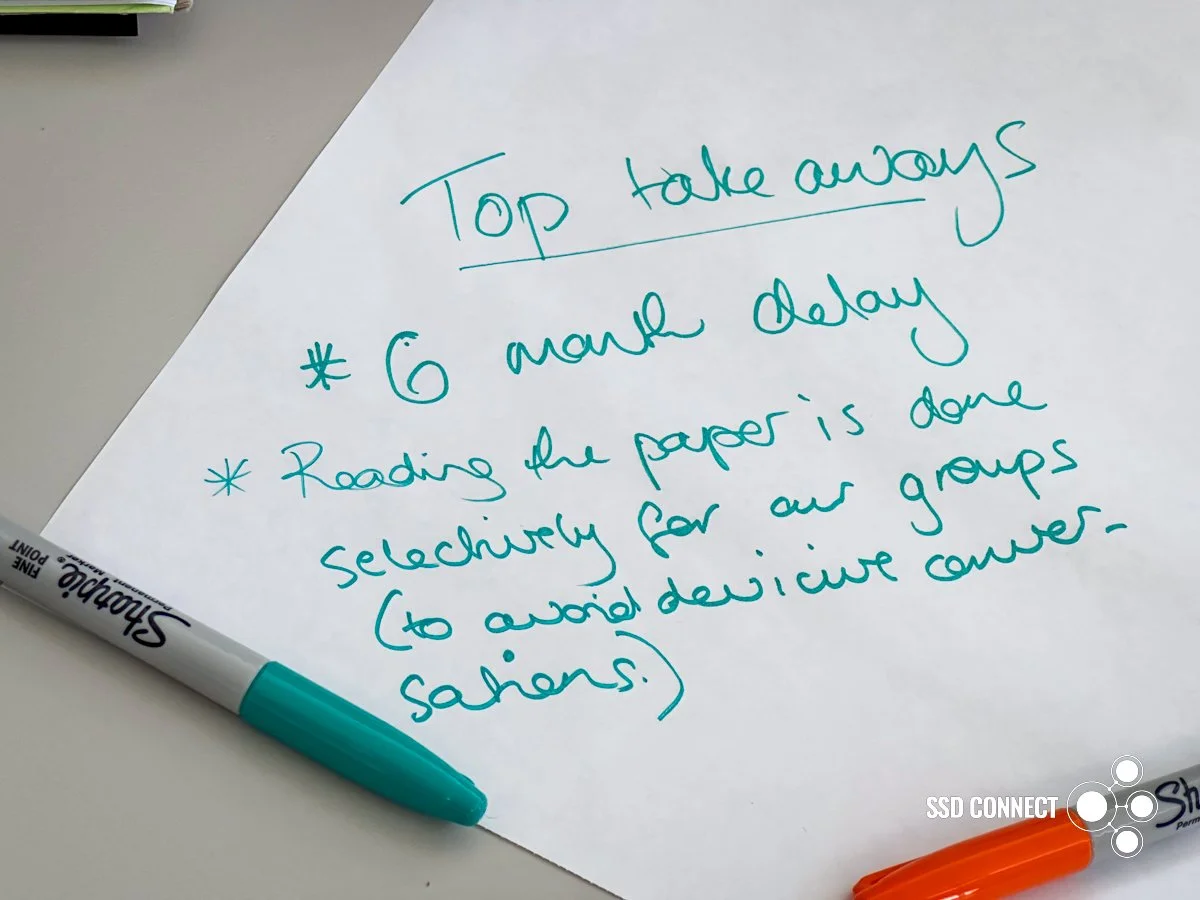 Top take aways
* 6 month delay
* Reading the paper is done
selectively for our groups
(to avoid devicive conver-
sations.)
FINE
POINT
Sharpie®
Permanent Marker
SSD CONNECT
Sh
Perm